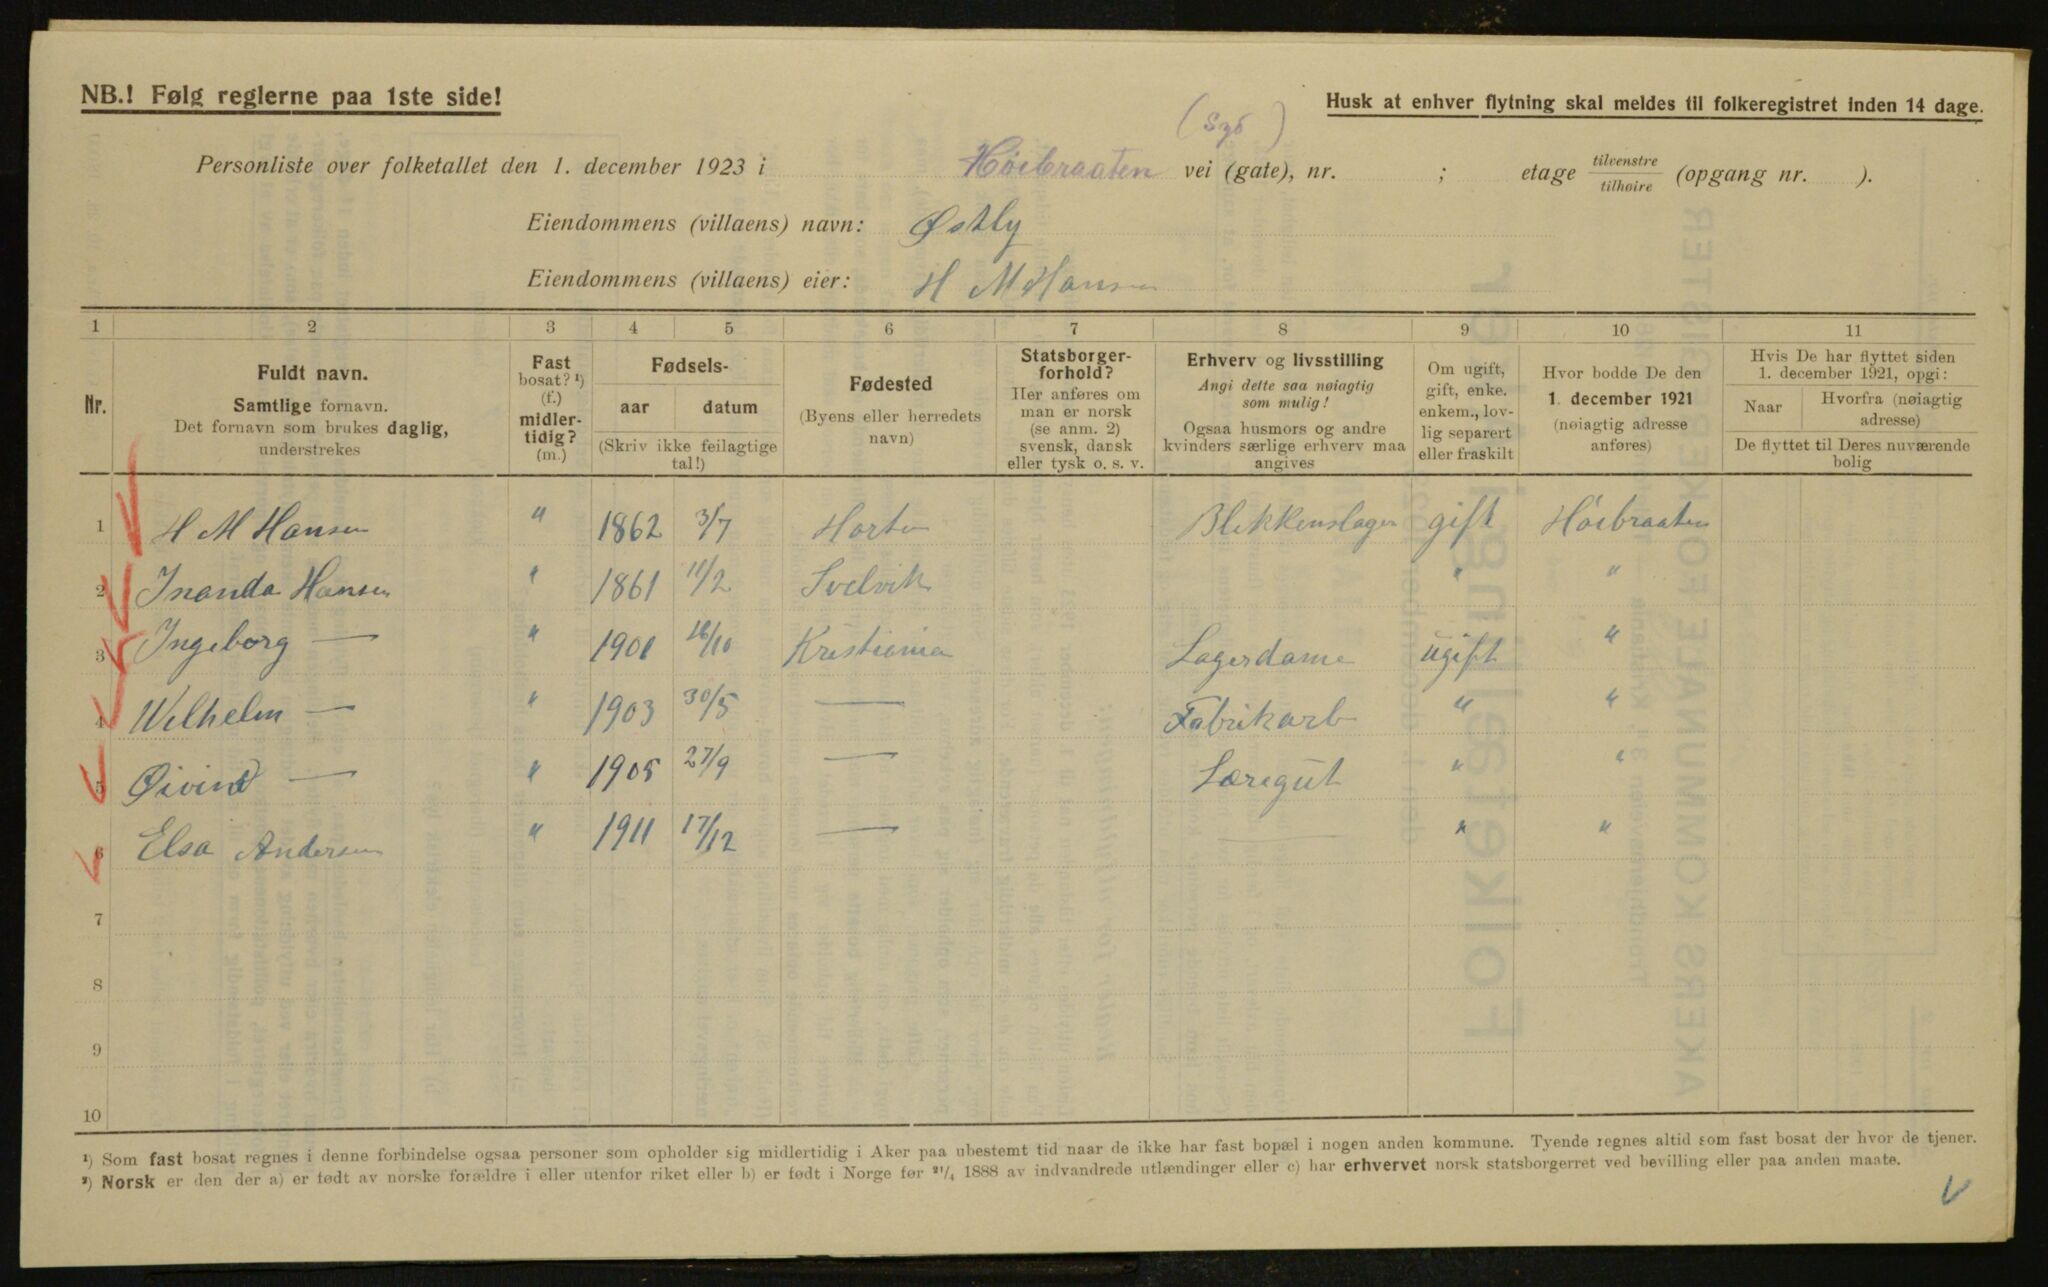 NB.! Følg reglerne paa 1ste side!
Husk at enhver flytning skal meldes til folkeregistret inden 14 dage.
Personliste over folketallet den 1. december 1923 i Høibraaten vei (gate), nr. ; etage tilvenstre tilhøire (opgang nr. ).
Eiendommens (villaens) navn: Østby
Eiendommens (villaens) eier: H M Hansen
1 2 3 4 5 6 7 8 9 10 11
Nr.
Fuldt navn.
Samtlige fornavn.
Det fornavn som brukes daglig,
understrekes
Fast
bosat? ¹)
(f.)
midler-
tidig?
(m.)
Fødsels-
aar datum
(Skriv ikke feilagtige
tal!)
Fødested
(Byens eller herredets
navn)
Statsborger-
forhold?
Her anføres om
man er norsk
(se anm. 2)
svensk, dansk
eller tysk o. s. v.
Erhverv og livsstilling
Angi dette saa nøiagtig
som mulig!
Ogsaa husmors og andre
kvinders særlige erhverv maa
angives
Om ugift,
gift, enke.
enkem., lov-
lig separert
eller fraskilt
Hvor bodde De den
1. december 1921
(nøiagtig adresse
anføres)
Hvis De har flyttet siden
1. december 1921, opgi:
Naar
Hvorfra (nøiagtig
adresse)
De flyttet til Deres nuværende
bolig
1 H M Hansen " 1862 3/7 Horten Blikkenslager gift Høibraaten
2 Hansen " 1861 11/2 Svelvik " "
3 Ingeborg — " 1901 16/10 Kristiania Lagerdame ugift "
4 Wilhelm — " 1903 30/5 — Fabrikarb " "
5 Øivind — " 1905 27/9 — Læregut " "
6 Elsa Andersen " 1911 17/12 — — " "
7
8
9
10
¹) Som fast bosat regnes i denne forbindelse ogsaa personer som opholder sig midlertidig i Aker paa ubestemt tid naar de ikke har fast bopæl i nogen anden kommune. Tyende regnes altid som fast bosat der hvor de tjener.
²) Norsk er den der a) er født av norske forældre i eller utenfor riket eller b) er født i Norge før 21/4 1888 av indvandrede utlændinger eller c) har erhvervet norsk statsborgerret ved bevilling eller paa anden maate.